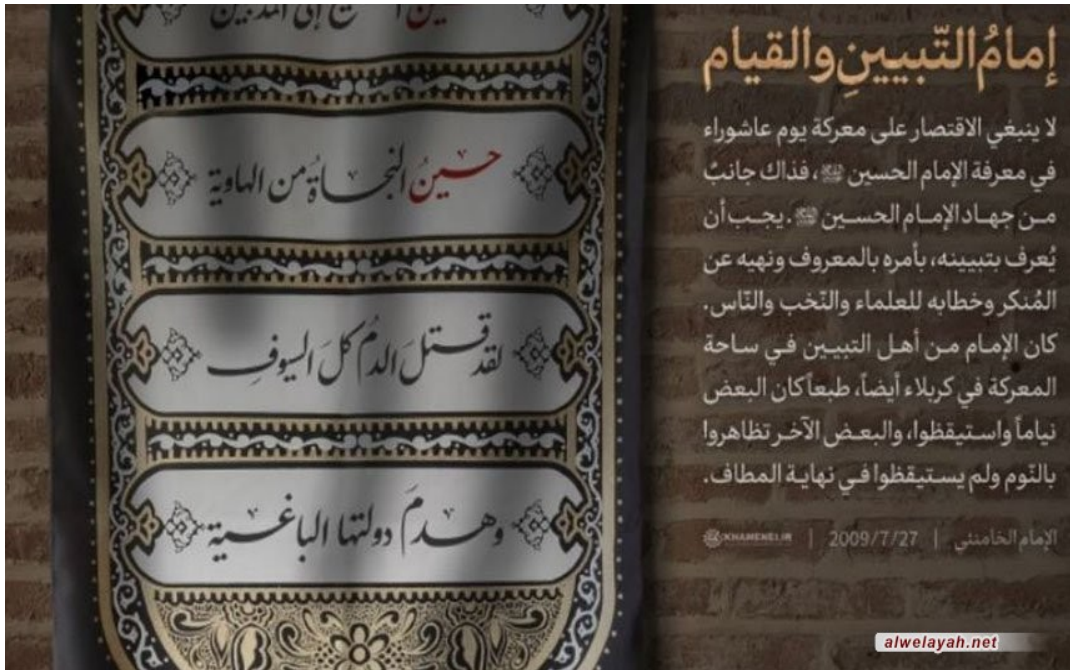 إمامُ التّبيينِ والقيام
لا ينبغي الاقتصار على معركة يوم عاشوراء
في معرفة الإمام الحسين ﷺ، فذاك جانبٌ
من جهاد الإمام الحسين ﷺ. يجب أن
يُعرف بتبيينه، بأمره بالمعروف ونهيه عن
المُنكر وخطابه للعلماء والنّخب والنّاس.
كان الإمام من أهل التبيين في ساحة
المعركة في كربلاء أيضاً، طبعاً كان البعض
نياماً واستيقظوا، والبعض الآخر تظاهروا
بالنّوم ولم يستيقظوا في نهاية المطاف.
الإمام الخامنئي | 2009/7/27 | KHAMENEI.IR
إلى المذنبين
حسينُ النجاةُ من الهاوية
لقد قتلَ الدمُ كلَ السيوفِ
وهدمَ دولتها الباغية
alwelayah.net